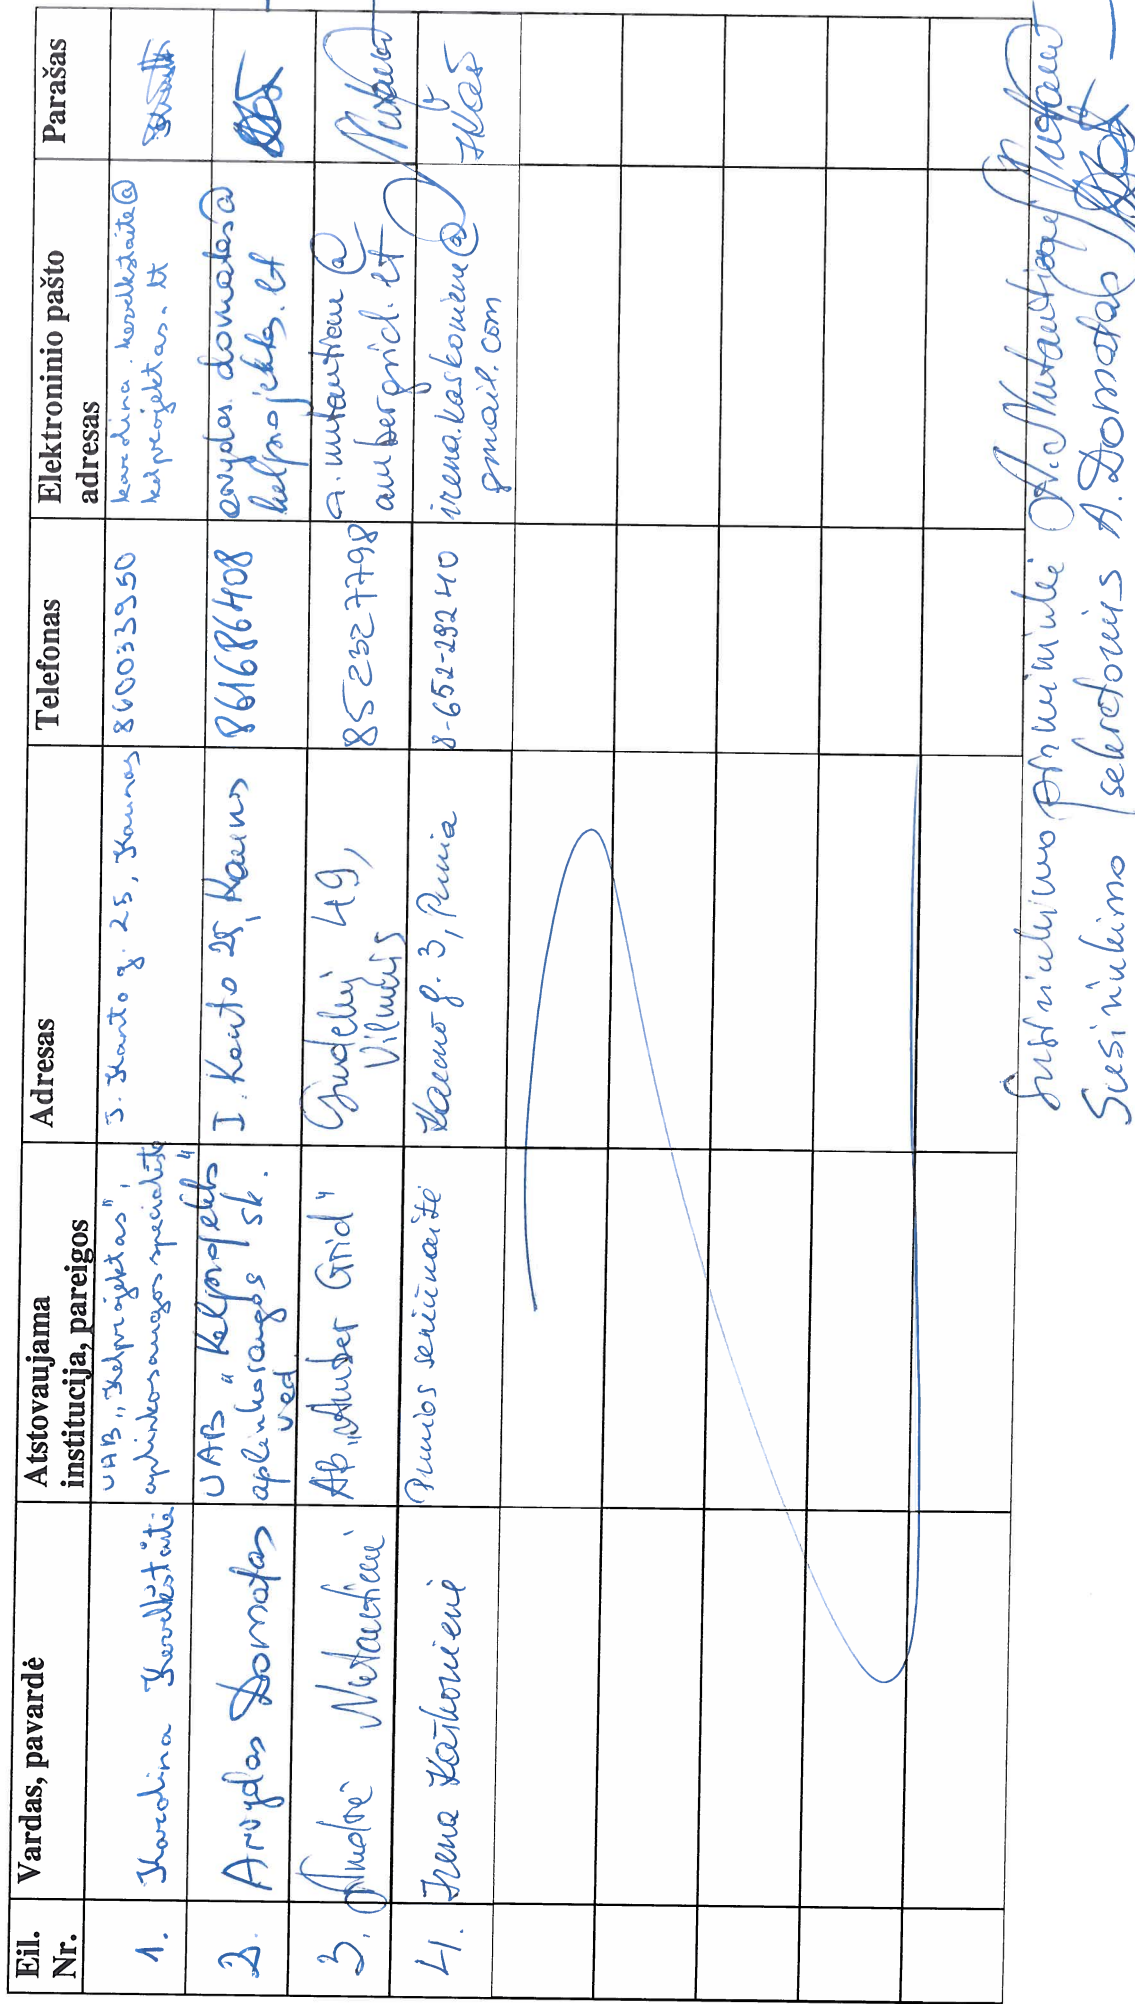 Eil. Nr.
Vardas, pavardė
Atstovaujama institucija, pareigos
Adresas
Telefonas
Elektroninio pašto adresas
Parašas
1.
Karolina
UAB „Kelprojektas",
aplinkosaugos specialistė
I. Kanto g. 25, Kaunas
860033950
kelprojektas.lt
2.
Arvydas Domatas
UAB „Kelprojektas"
aplinkosaugos sk.
ved.
I. Kanto 25, Kaunas
861686408
arvydas.domatas@
kelprojektas.lt
3.
AB „Amber Grid"
49,
Vilnius
852327798
ambergrid.lt
4.
Irena Kaškonienė
Punios seniūnaitė
Kauno g. 3, Punia
8-652-29240
irena.kaskoniene@
gmail.com
Susirinkimo pirmininkė
Susirinkimo sekretorius A. Domatas